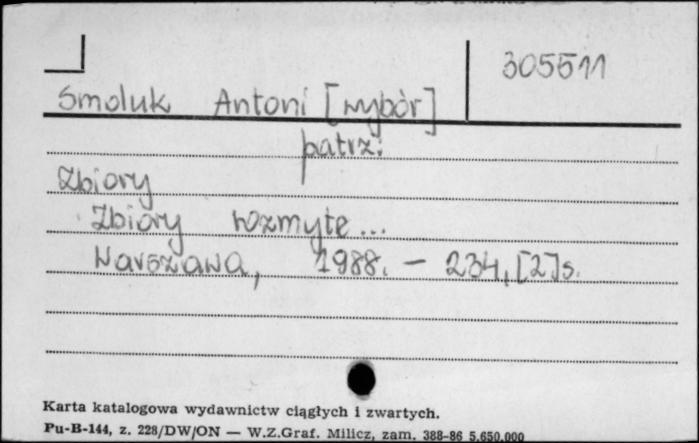 305511
Smoluk Antoni [wybór]
patrz:
Zbiory
Zbiory rozmyte...
Warszawa, 1988. — 234, [2] s.
Karta katalogowa wydawnictw ciągłych i zwartych.
Pu-B-144, z. 228/DW/ON — W.Z.Graf. Milicz, zam. 388-86 5.650.000